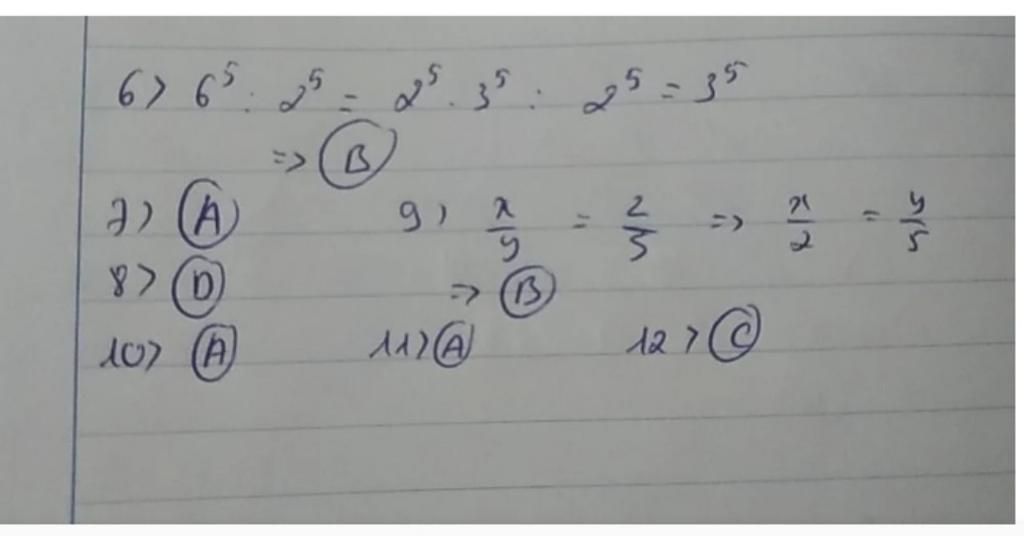 6> 6⁵ : 2⁵ = 2⁵ . 3⁵ : 2⁵ = 3⁵
=> B
7) A 9) x/y = 2/5 => x/2 = y/5
8> D => B
10> A 11> A 12> C